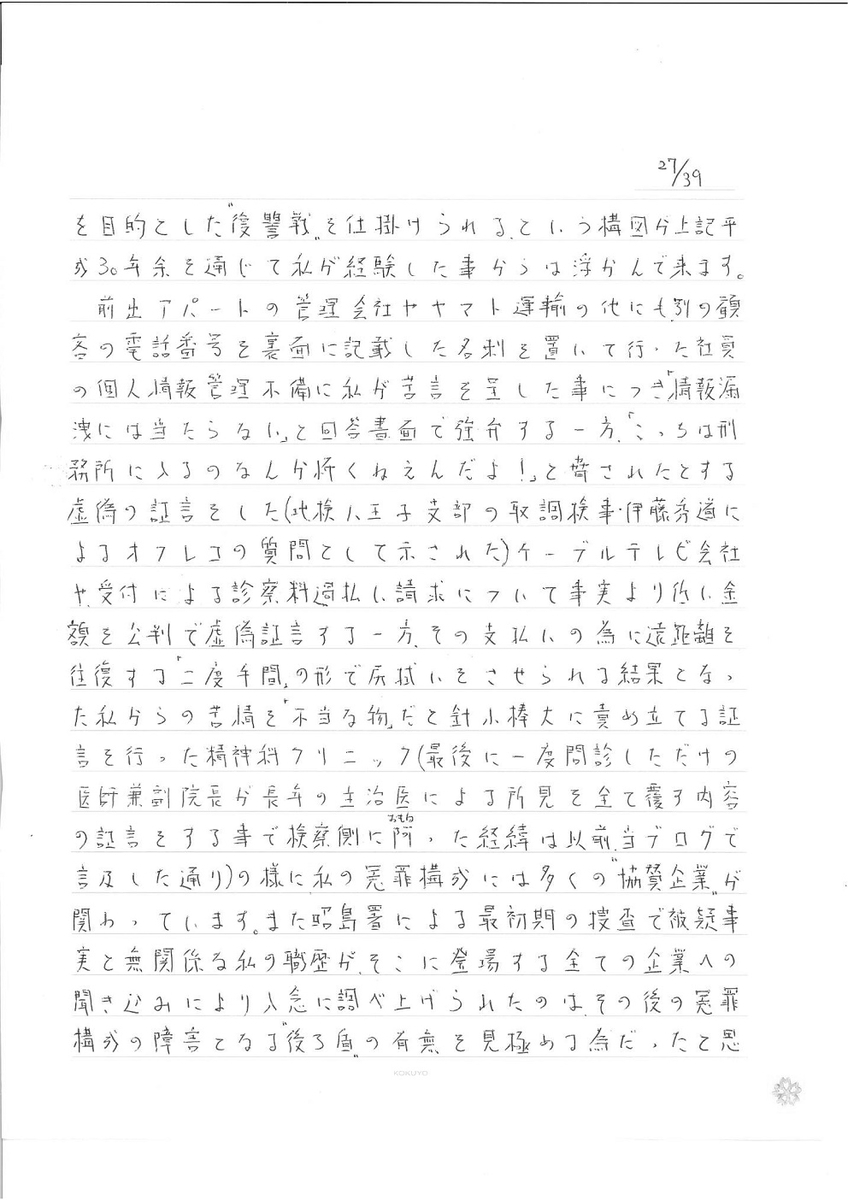 27/39
を目的とした"復讐戦"を仕掛けられる、という構図が上記平
成30年余を通じて私が経験した事からは浮かんで来ます。
前出アパートの管理会社やヤマト運輸の他にも、別の顧
客の電話番号を裏面に記載した名刺を置いて行った社員
の個人情報管理不備に私が苦言を呈した事につき「情報漏
洩には当たらない」と回答書面で強弁する一方、「こっちは刑
務所に入るのなんか怖くねえんだよ!」と脅されたとする
虚偽の証言をした(地検八王子支部の取調検事・伊藤秀道に
よるオフレコの質問として示された)ケーブルテレビ会社
や、受付による診察料過払い請求について事実より低い金
額を公判で虚偽証言する一方、その支払いの為に遠距離を
往復する「二度手間」の形で尻拭いをさせられる結果となっ
た私からの苦情を「不当な物」だと針小棒大に責め立てる証
言を行った精神科クリニック(最後に一度問診しただけの
医師兼副院長が長年の主治医による所見を全て覆す内容
の証言をする事で検察側に阿った経緯は以前、当ブログで
おもね
言及した通り)の様に、私の冤罪構成には多くの"協賛企業"が
関わっています。また昭島署による最初期の捜査で被疑事
実と無関係な私の職歴が、そこに登場する全ての企業への
聞き込みにより入念に調べ上げられたのは、その後の冤罪
構成の障害となる"後ろ盾"の有無を見極める為だったと思
KOKUYO